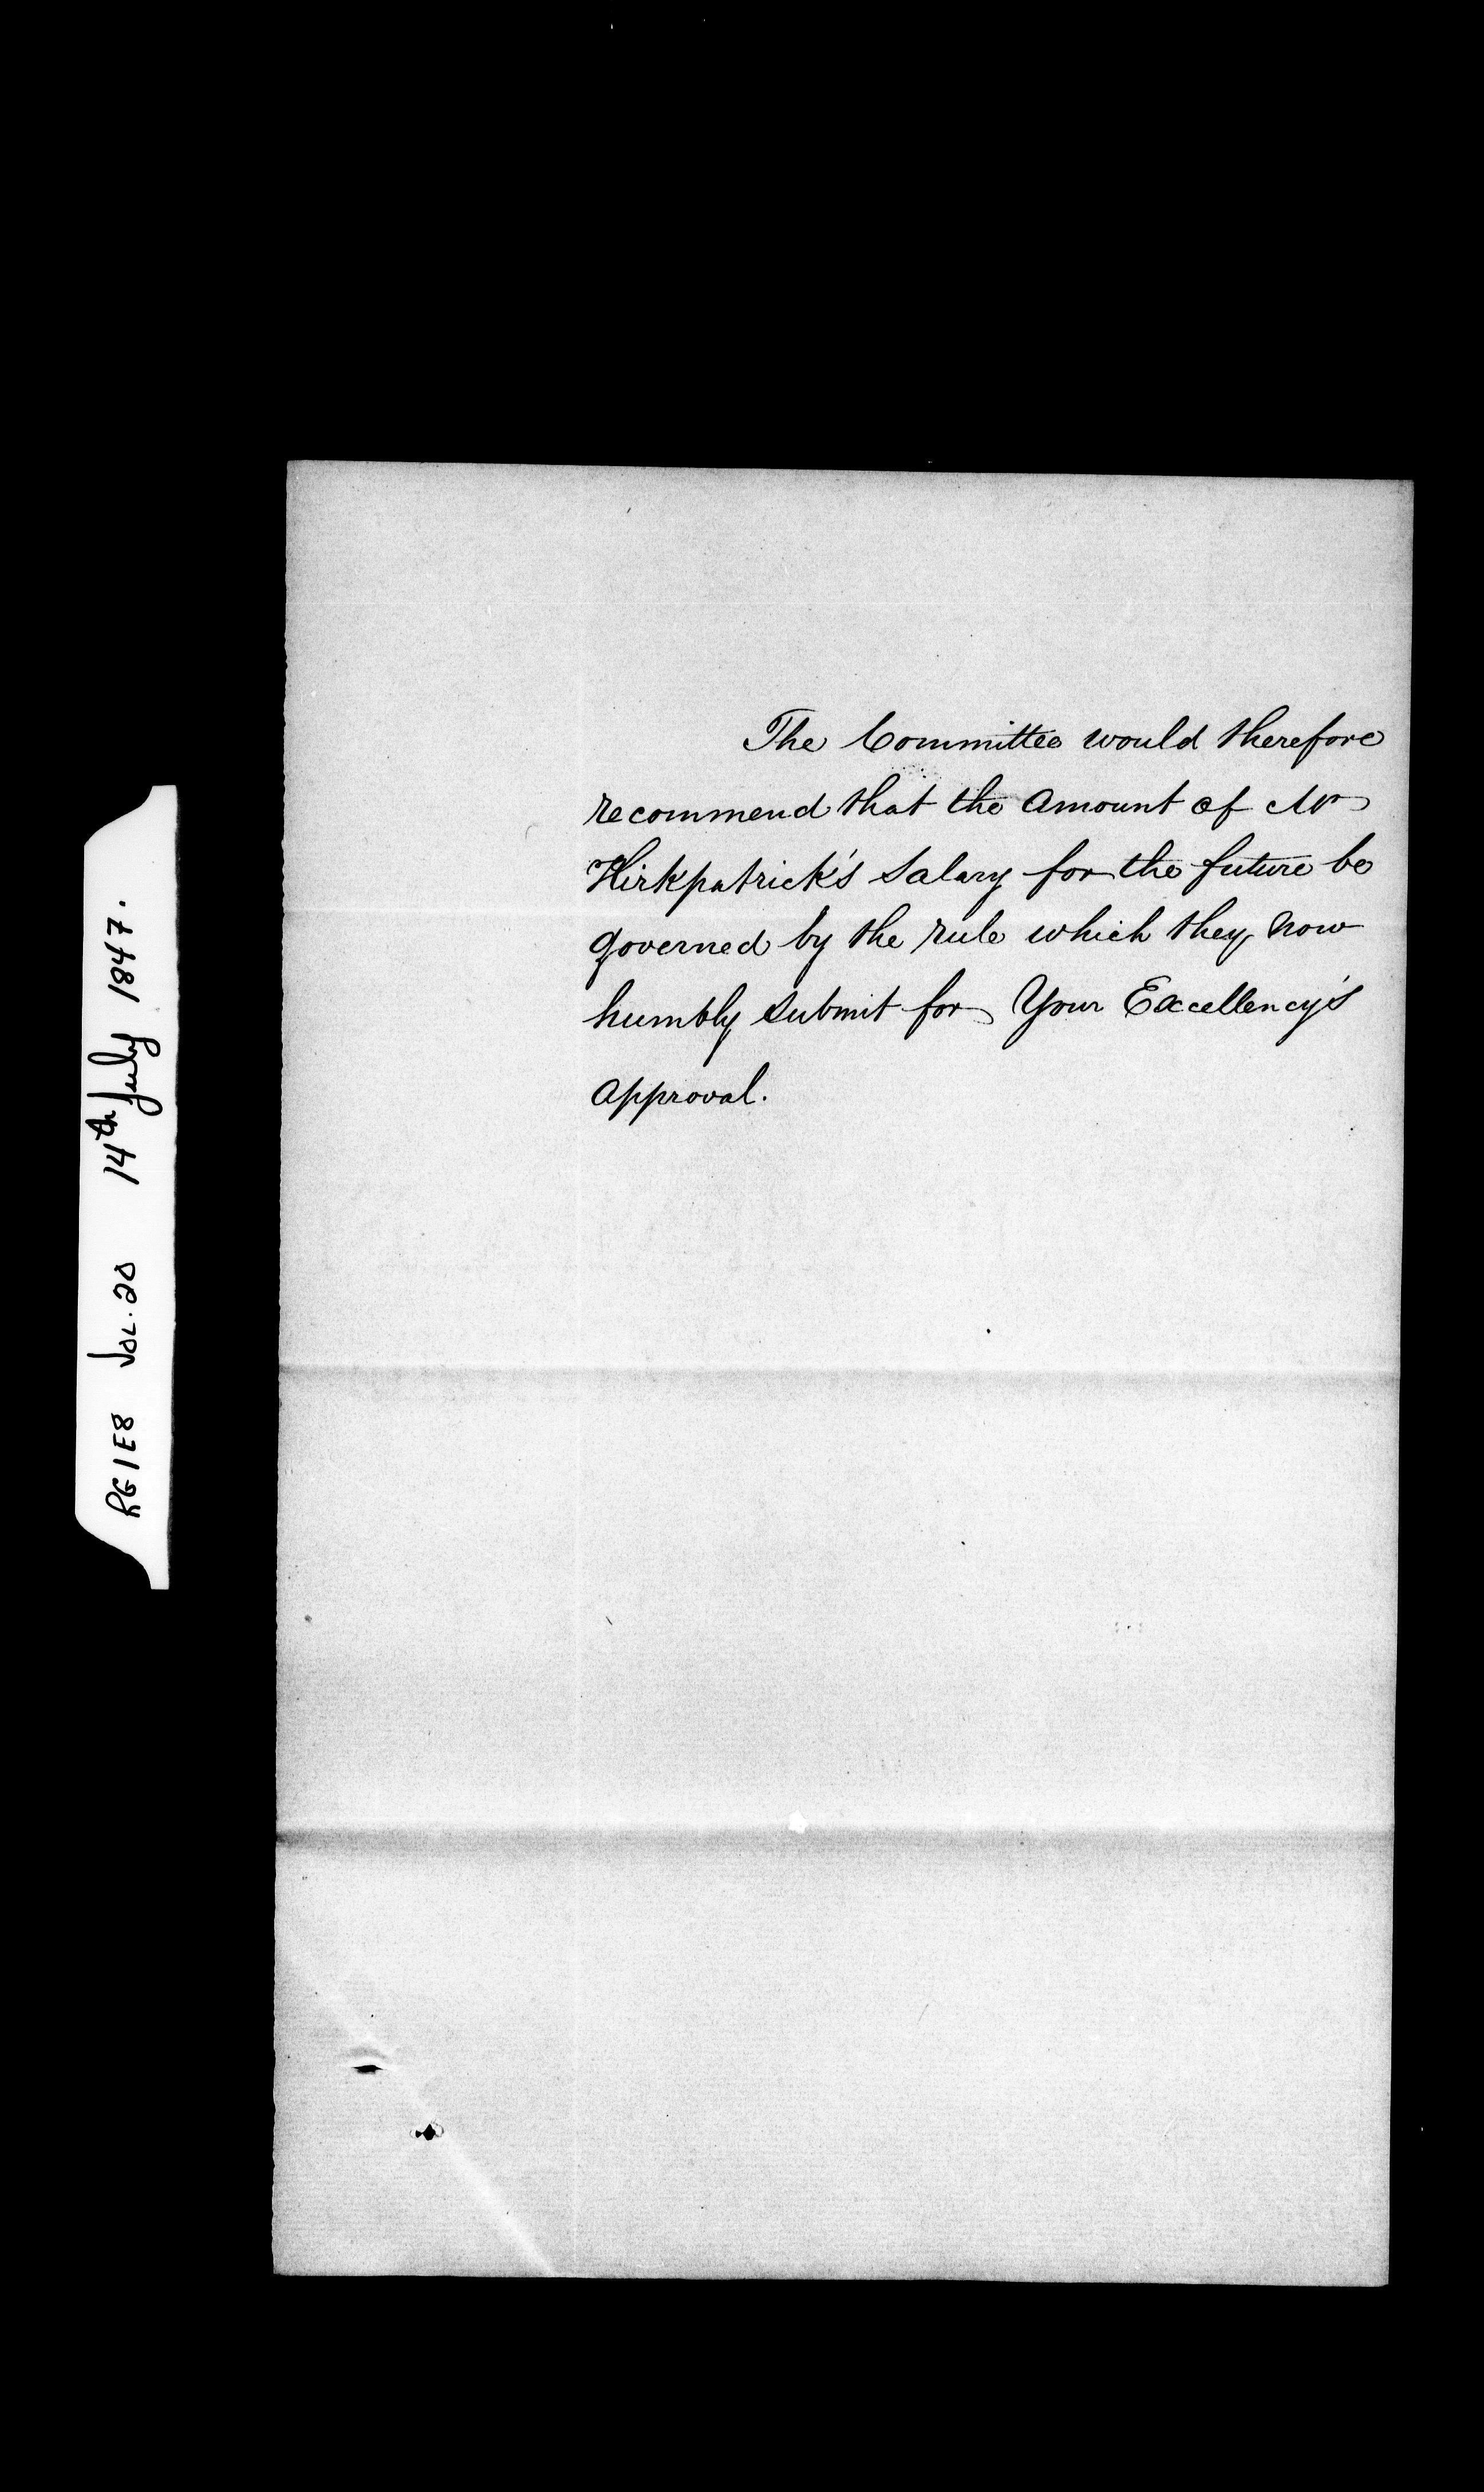 The Committee would therefore
recommend that the amount of Mr
Kirkpatrick's Salary for the future be
governed by the rule which they now
humbly submit for Your Excellency's
approval.
RG1E8 VOL. 20 14th July 1847.